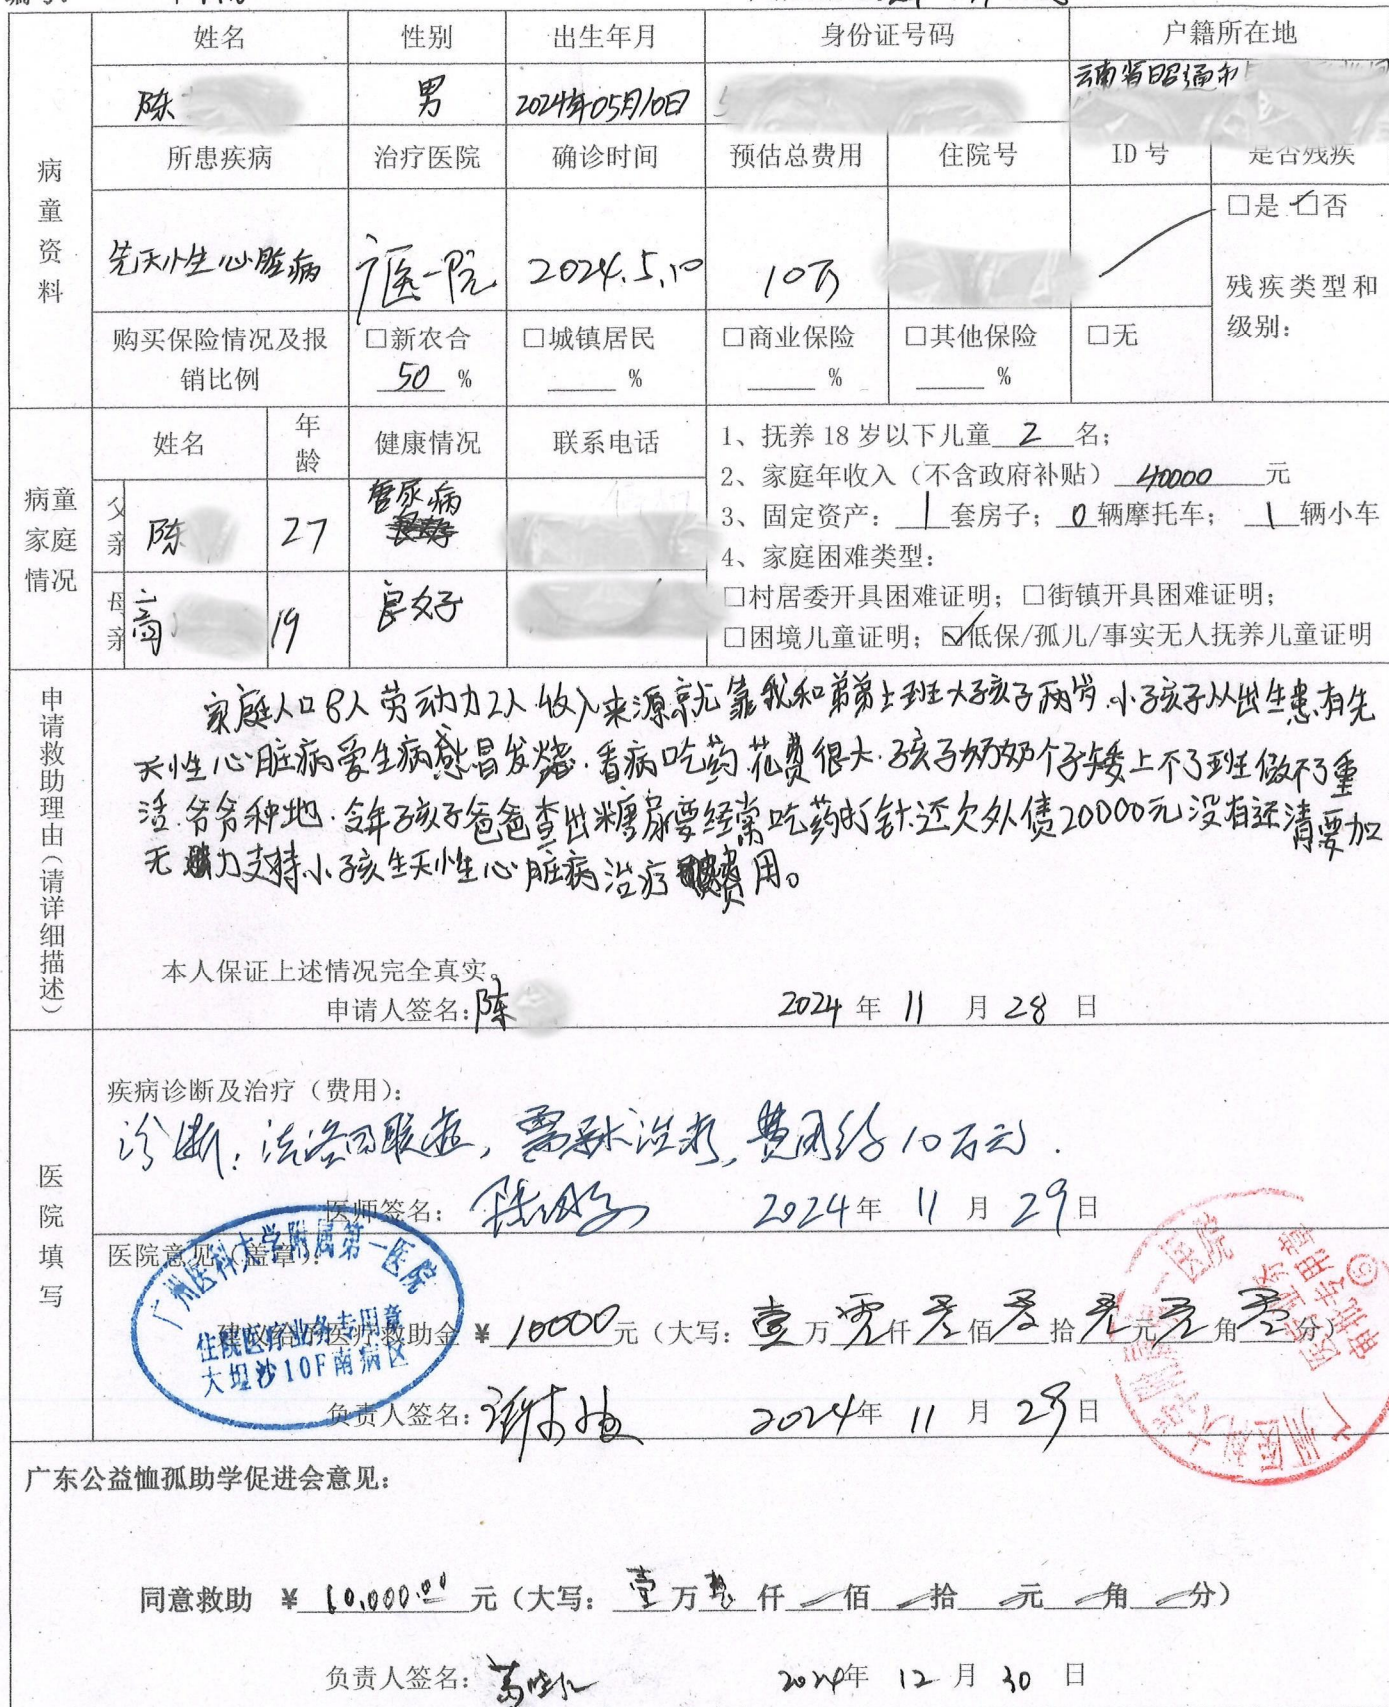 姓名 性别 出生年月 身份证号码 户籍所在地
陈 男 2024年05月10日 云南省昭通市
所患疾病 治疗医院 确诊时间 预估总费用 住院号 ID 号 是否残疾
病童资料
□是 ☑否
先天性心脏病 广医一院 2024.5.10 10万
残疾类型和级别:
购买保险情况及报销比例 □新农合 50 % □城镇居民 ____ % □商业保险 ____ % □其他保险 ____ % □无
病童家庭情况
姓名 年龄 健康情况 联系电话
父亲 陈 27 糖尿病
母亲 高 19 良好
1、抚养 18 岁以下儿童 2 名;
2、家庭年收入（不含政府补贴） 40000 元
3、固定资产: 1 套房子; 0 辆摩托车; 1 辆小车
4、家庭困难类型:
□村居委开具困难证明; □街镇开具困难证明;
□困境儿童证明; ☑低保/孤儿/事实无人抚养儿童证明
申请救助理由（请详细描述）
家庭人口8人劳动力2人.收入来源就靠我和弟弟上班大孩子两岁.小孩子从出生患有先
天性心脏病爱生病感冒发烧.看病吃药花费很大.孩子奶奶个子矮上不了班做不了重
活.爷爷种地.今年孩子爸爸查出糖尿要经常吃药打针.还欠外债20000元没有还清要加
无 力支持小孩生天性心脏病治疗费用。
本人保证上述情况完全真实。
申请人签名: 陈 2024 年 11 月 28 日
医院填写
疾病诊断及治疗（费用）:
诊断: 法洛四联症, 需手术治疗, 费用约10万元.
医师签名: 2024年 11 月 29日
医院意见（盖章）:
建议给予医疗救助金 ¥ 10000 元（大写: 壹 万 零 仟 零 佰 零 拾 零 元 零 角 零 分）
广州医科大学附属第一医院
住院医疗业务专用章
大坦沙10F南病区
负责人签名: 2024年 11 月 29日
广州医科大学附属第一医院
医疗业务
审批专用章
⑨
广东公益恤孤助学促进会意见:
同意救助 ¥ 10,000.00 元（大写: 壹 万 零 仟 佰 拾 元 角 分）
负责人签名: 2024年 12 月 30 日